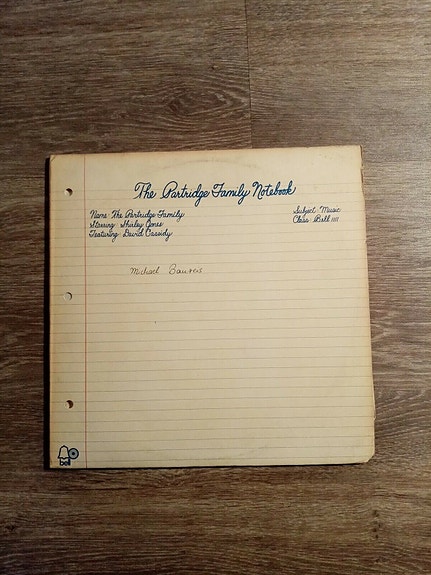 The Partridge Family Notebook
Name: The Partridge Family
Starring: Shirley Jones
Featuring: David Cassidy
Subject: Music
Class: Bell 1111
Michael
bell